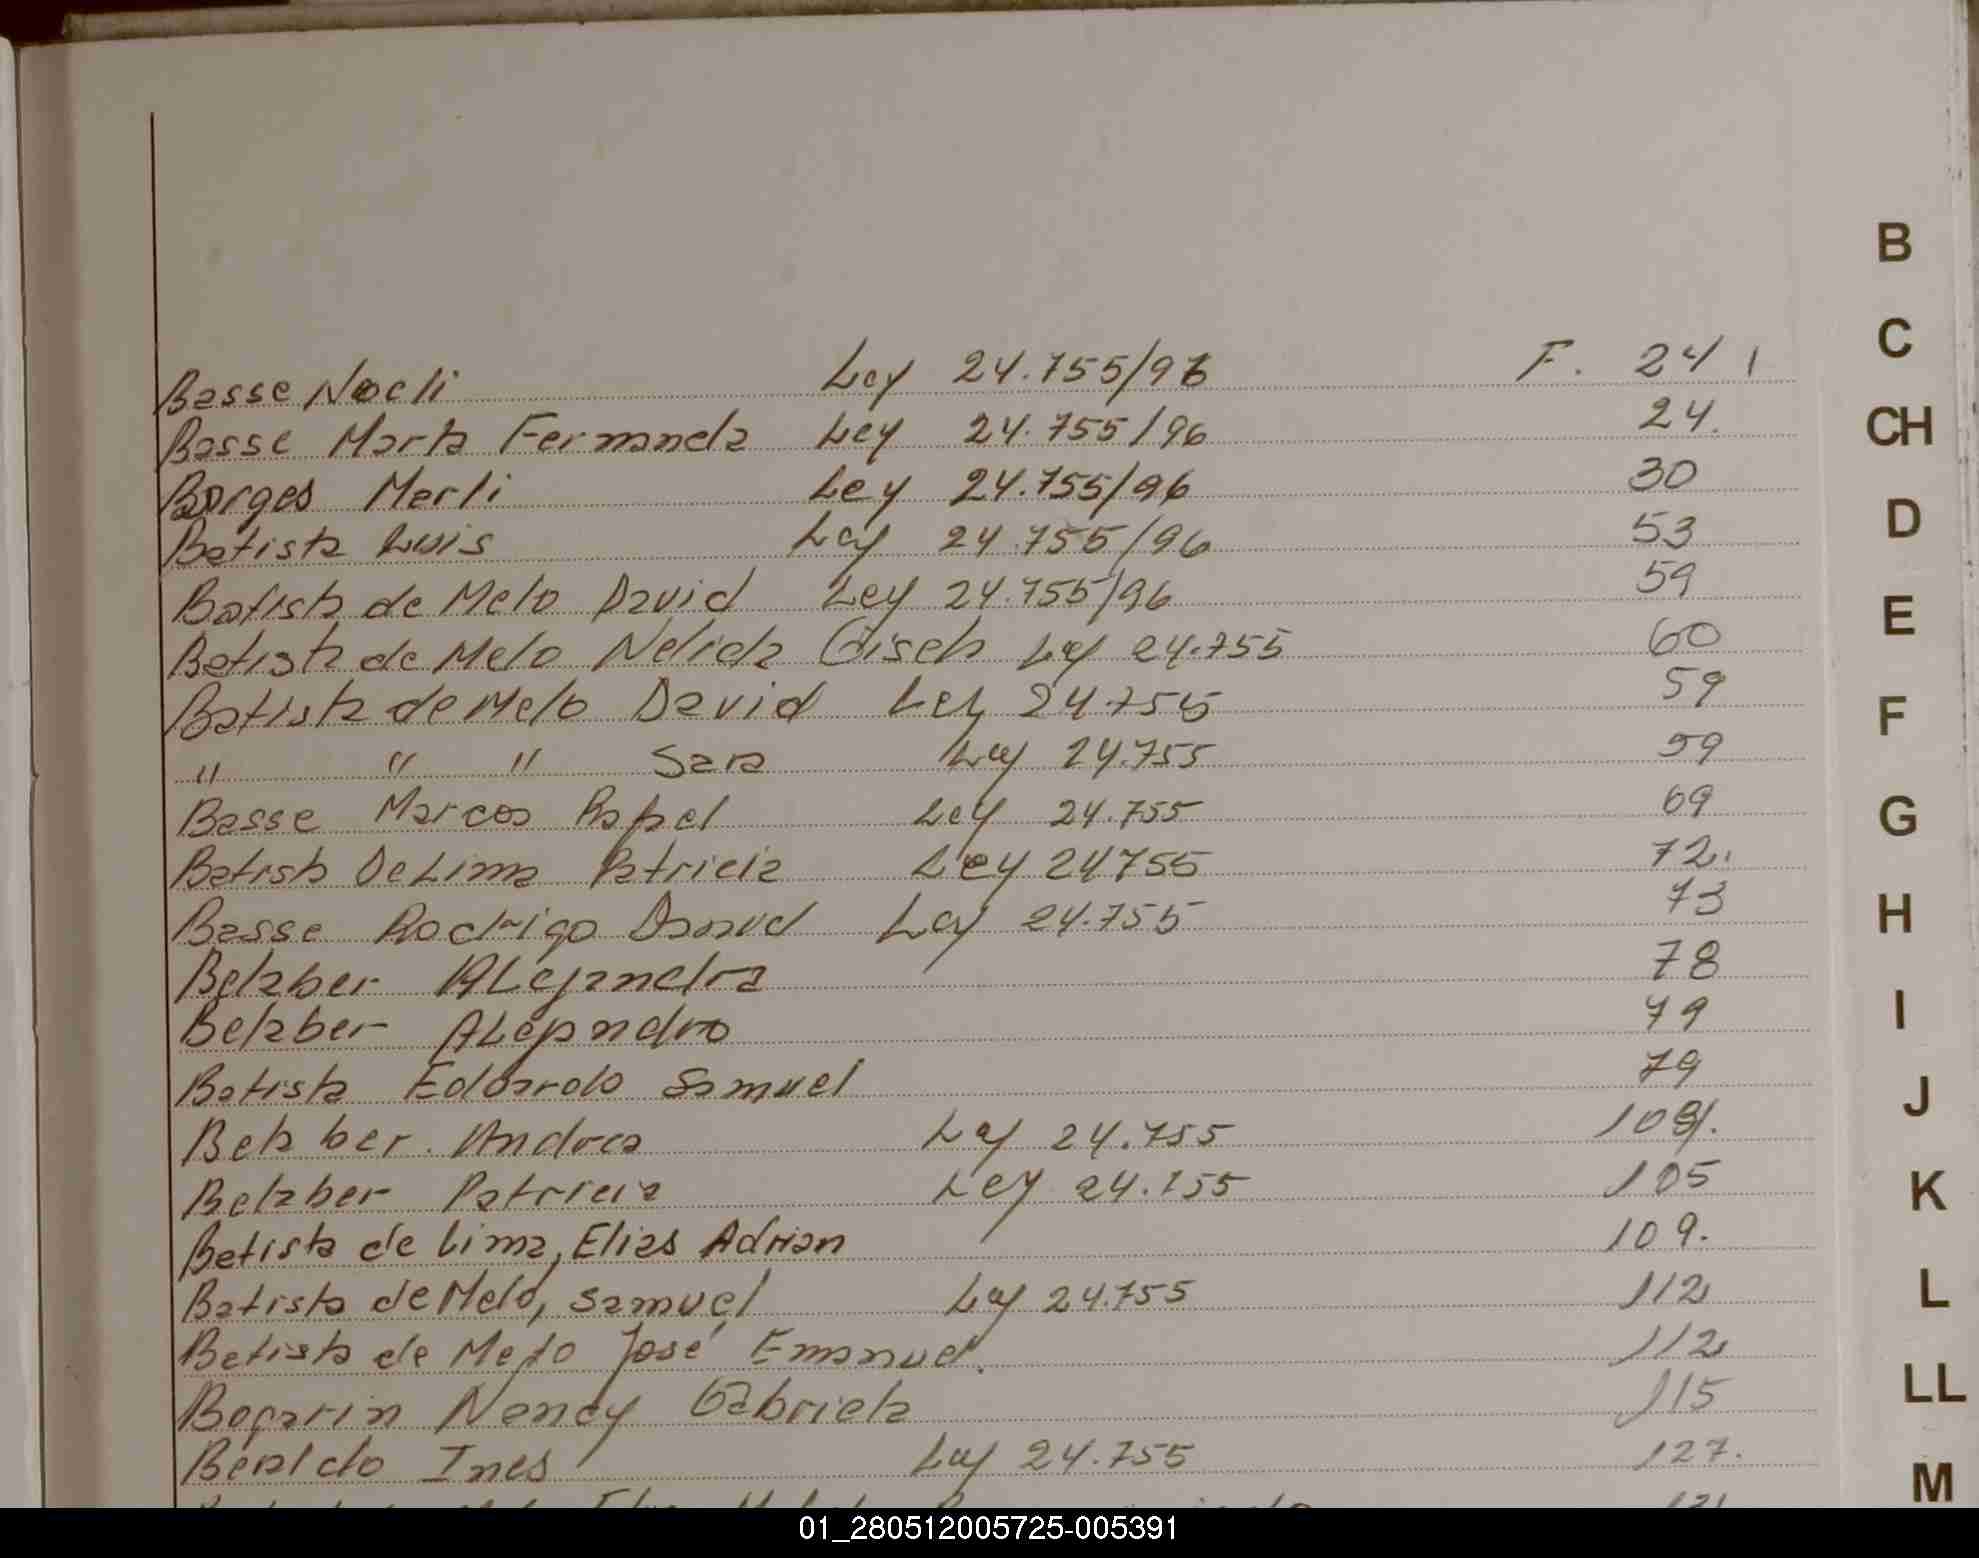 Basse Noeli Ley 24.755/96 F. 24
Basse Marta Fernanda Ley 24.755/96 24.
Borges Marli Ley 24.755/96 30
Batista Luis Ley 24.755/96 53
Batista de Melo David Ley 24.755/96 59
Batista de Melo Nelida Gisela Ley 24.755 60
Batista de Melo David Ley 24.755 59
" " " Sara Ley 24.755 59
Basse Marcos Rafael Ley 24.755 69
Batista De Lima Patricia Ley 24755 72.
Basse Rodrigo Ley 24.755 73
Belaber Alejandra 78
Belaber Alejandro 79
Batista Eduardo Samuel 79
Belaber Andrea Ley 24.755
Belaber Patricia Ley 24.755 105
Batista de Lima, Elias Adrian 109.
Batista de Melo, Samuel Ley 24.755 112
Batista de Melo José Emanuel. 112
Bogarin Nancy Gabriela 115
Beraldo Ines Ley 24.755 127.
B
C
CH
D
E
F
G
H
I
J
K
L
LL
M
01_280512005725-005391